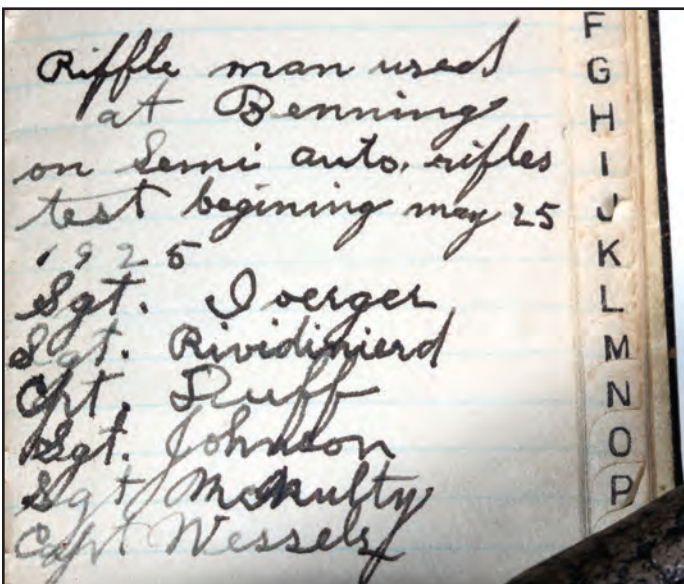 Riffle man used
at Benning
on Semi auto. rifles
test begining may 25
1925
Sgt. Joerger
Sgt. Rividinierd
Cpt. Ruff
Sgt. Johnson
Sgt McNulty
Capt Wessels
F
G
H
I
J
K
L
M
N
O
P